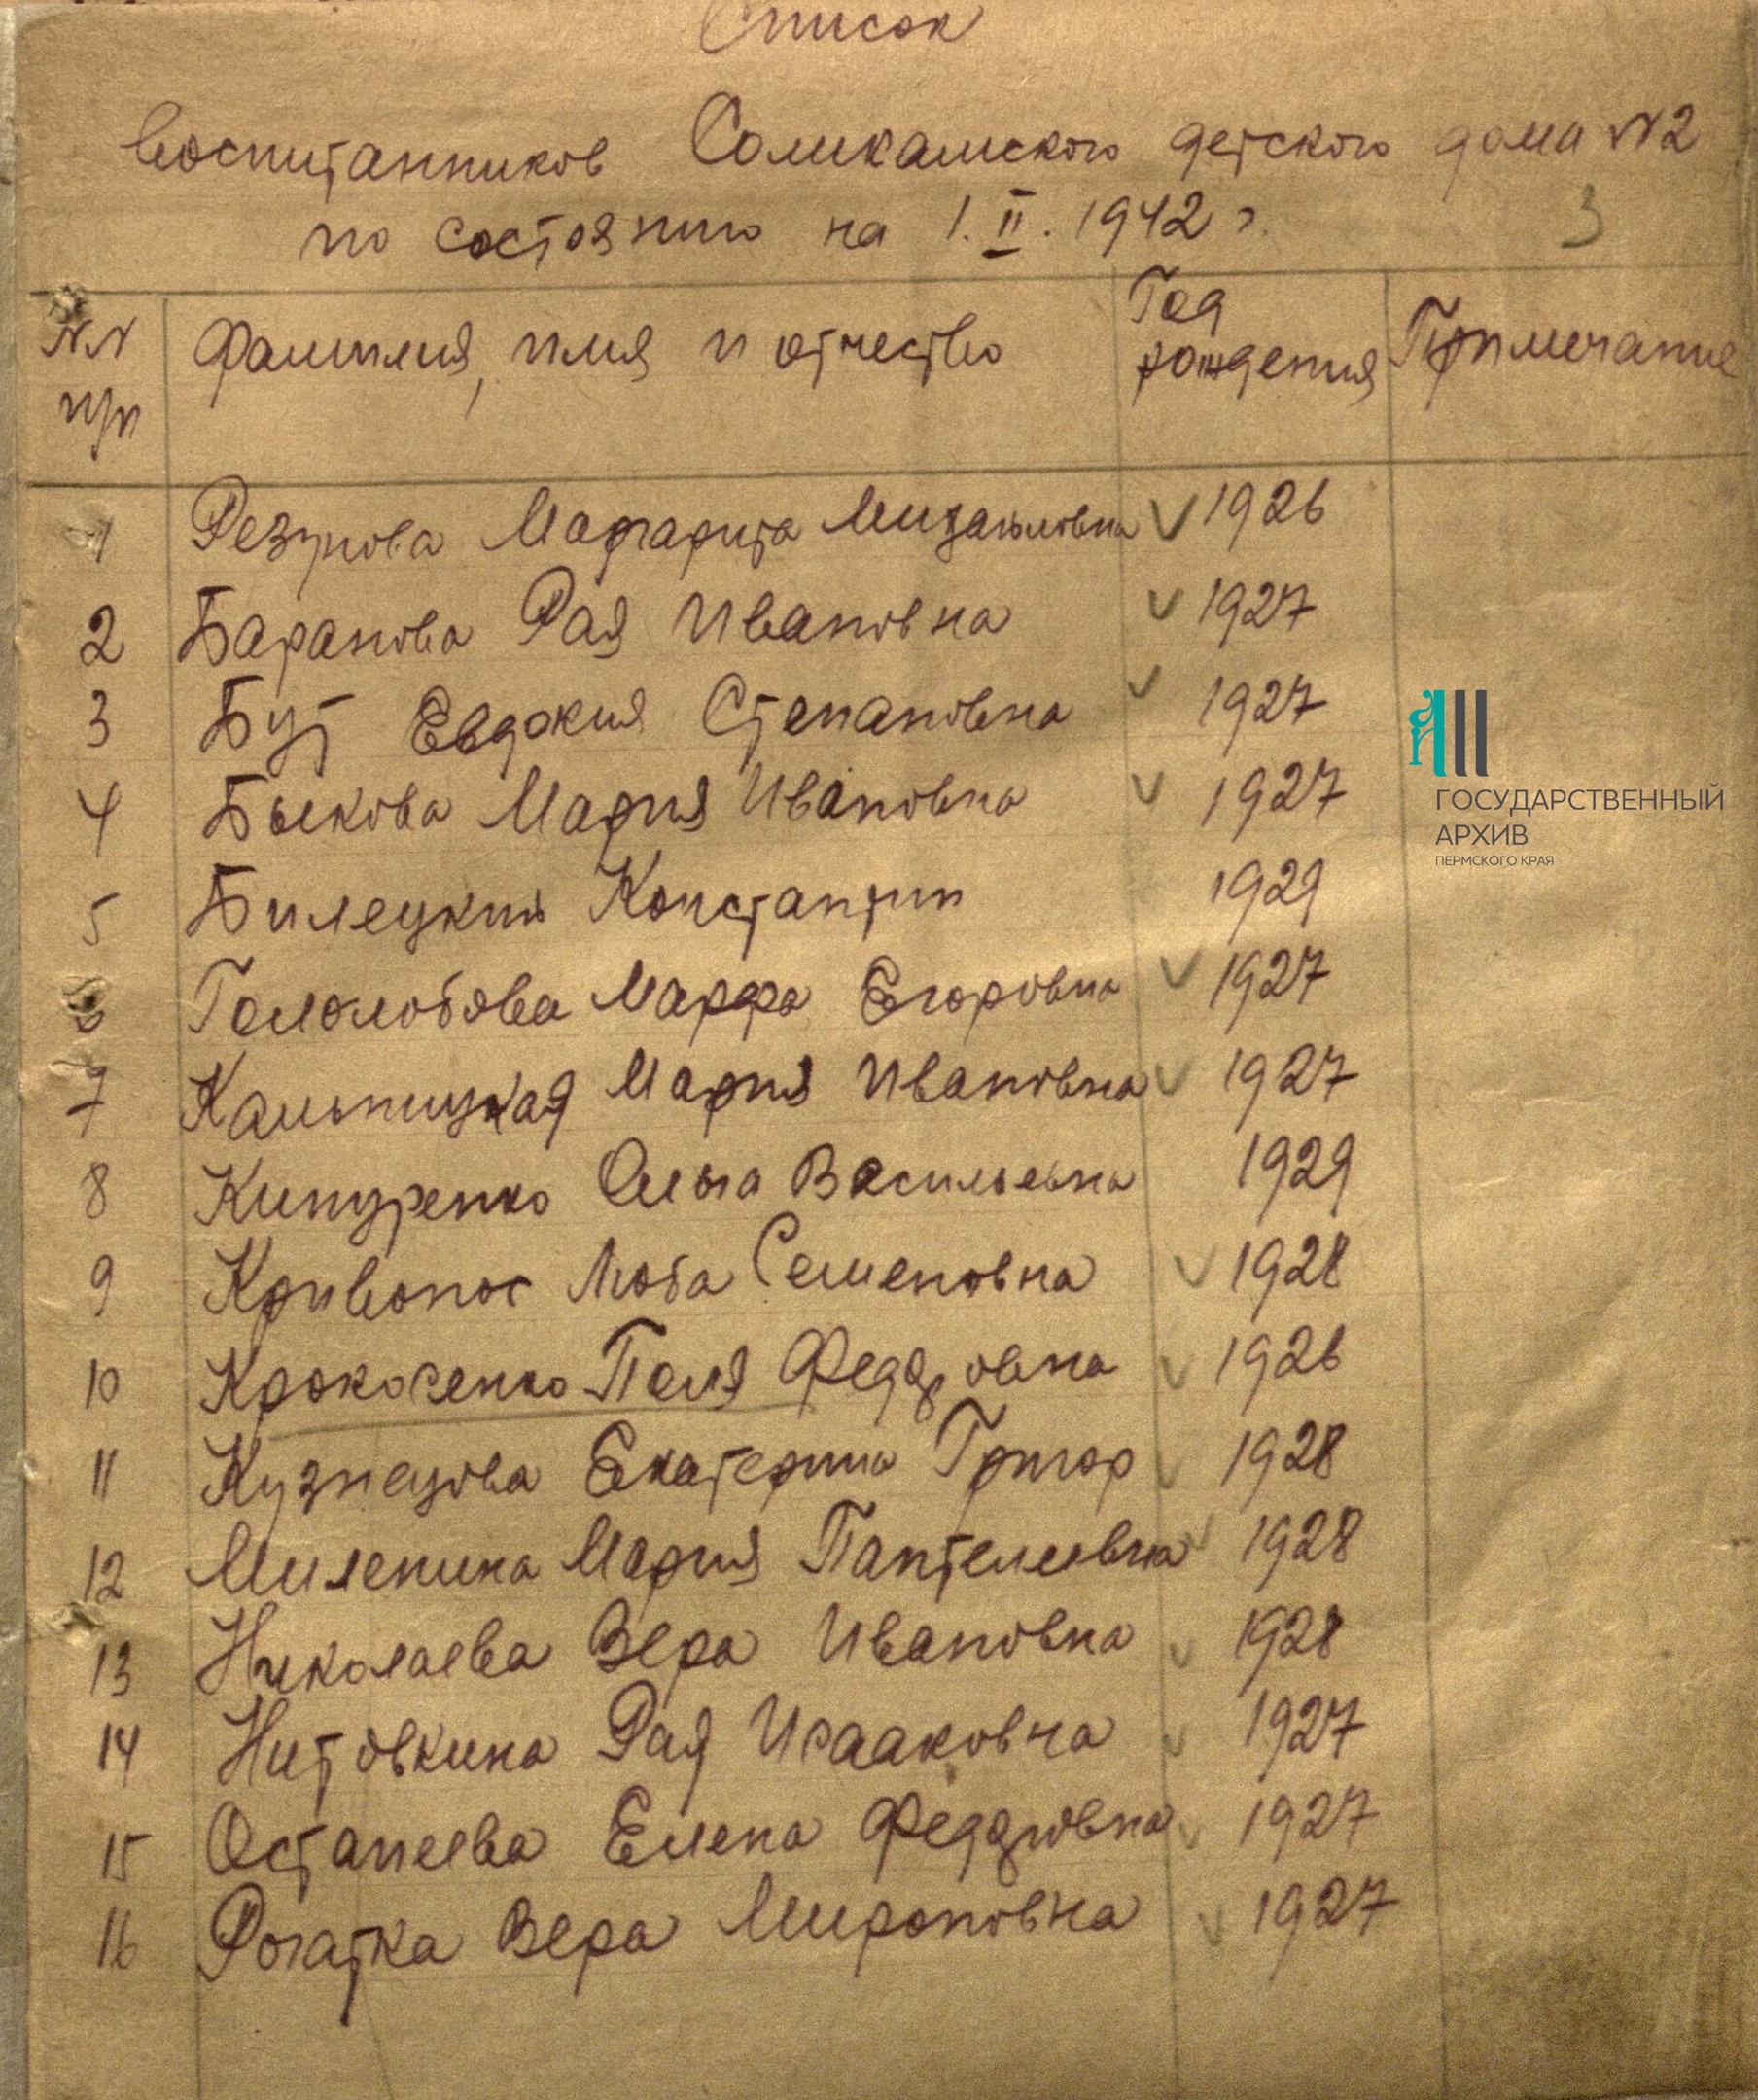 Список
воспитанников Соликамского детского дома №2
по состоянию на 1.II.1942 г.
3
NN п/п Фамилия, имя и отчество Год рождения Примечание
1 Резунова Маргарита Михайловна V 1926
2 Баранова Рая Ивановна V 1927
3 Бут Евдокия Степановна V 1927
4 Быкова Мария Ивановна V 1927
5 Билецкий Константин 1929
6 Гололобова Марфа Егоровна V 1927
7 Кальницкая Мария Ивановна V 1927
8 Ольга Васильевна 1929
9 Кривонос Люба Семеновна V 1928
10 Крокосенко Поля Федоровна V 1926
11 Кузнецова Екатерина Григор V 1928
12 Миленина Мария Пантелеевна V 1928
13 Николаева Вера Ивановна V 1928
14 Нитовкина Рая Исааковна V 1927
15 Остапеева Елена Федоровна V 1927
16 Рогатка Вера Мироновна V 1927
ГОСУДАРСТВЕННЫЙ
АРХИВ
ПЕРМСКОГО КРАЯ